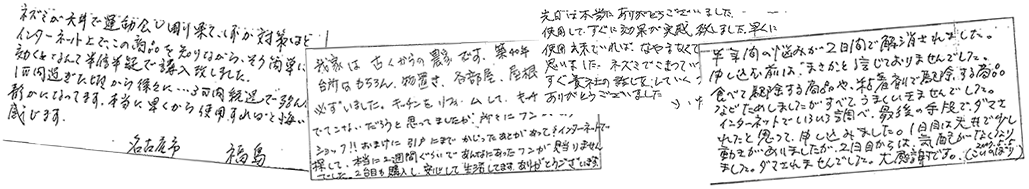 ネズミが天井で運動会し困り果て、しかし対策ほと
インターネット上で、この商品を知りながら、そう簡単に
効くとなんて半信半疑で購入致しました。
1週間過ぎた頃から徐々に…3週間経過で殆ど
静かになってます。本当に早くから使用すればと悔い
感じます。
名古屋市 福島
我家は古くからの農家です。築40年
台所はもちろん、物置き、各部屋、屋根
必ずいました。キッチンをリフォームして、もう
でてこないだろうと思ってましたが、所々にフン……
ショック!!おまけに引出にまでかじったあとがあってインターネットで
探して、本当に2週間ぐらいであんなにあったフンが見当りません
でした。2台目も購入し、安心して生活してます。ありがとうございます。
先日は本当にありがとうございました。
使用して、すぐに効果が実感致しました。早くに
使用出来ていれば、なやまなくて
思いました。ネズミでこまってい
すぐ貴社の話をしていくつ
ありがとうございました
半年間の悩みが2日間で解消されました。
申し込む前は、まさかと信じておりませんでした。
食べて駆除する商品や、粘着剤で駆除する商品
などためしましたがすべてうまくいきませんでした。
インターネットでいろいろ調べ、最後の手段で、ダマさ
れたと思って、申し込みました。1日目は天井で少し
動きがありましたが、2日目からは、気配がなくなり
ました。ダマされませんでした。大感謝です。